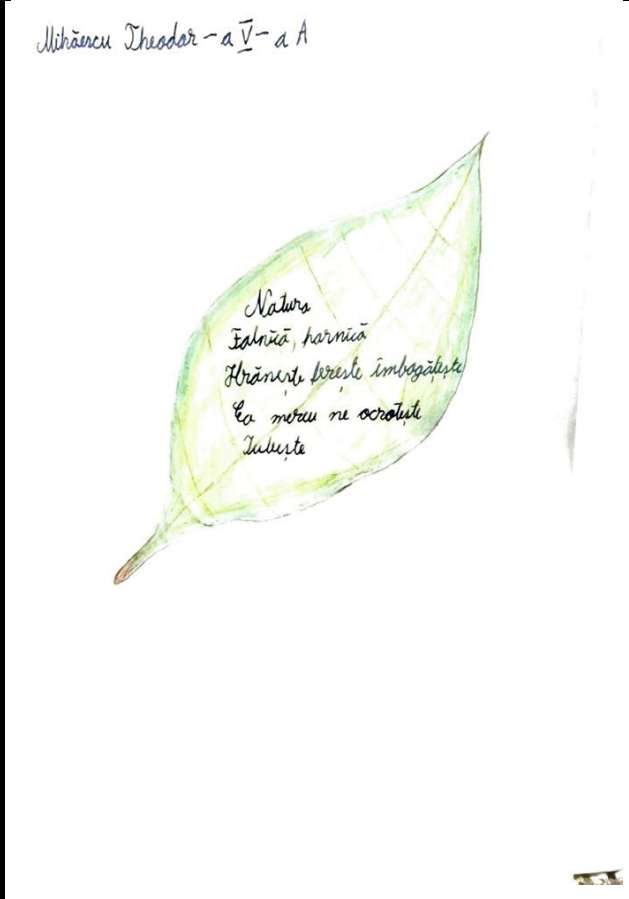 Mihăescu Theodor - a V - a A
Natura
Falnică, harnică
Hrănește ferește îmbogățește
Ea mereu ne ocrotește
Iubește